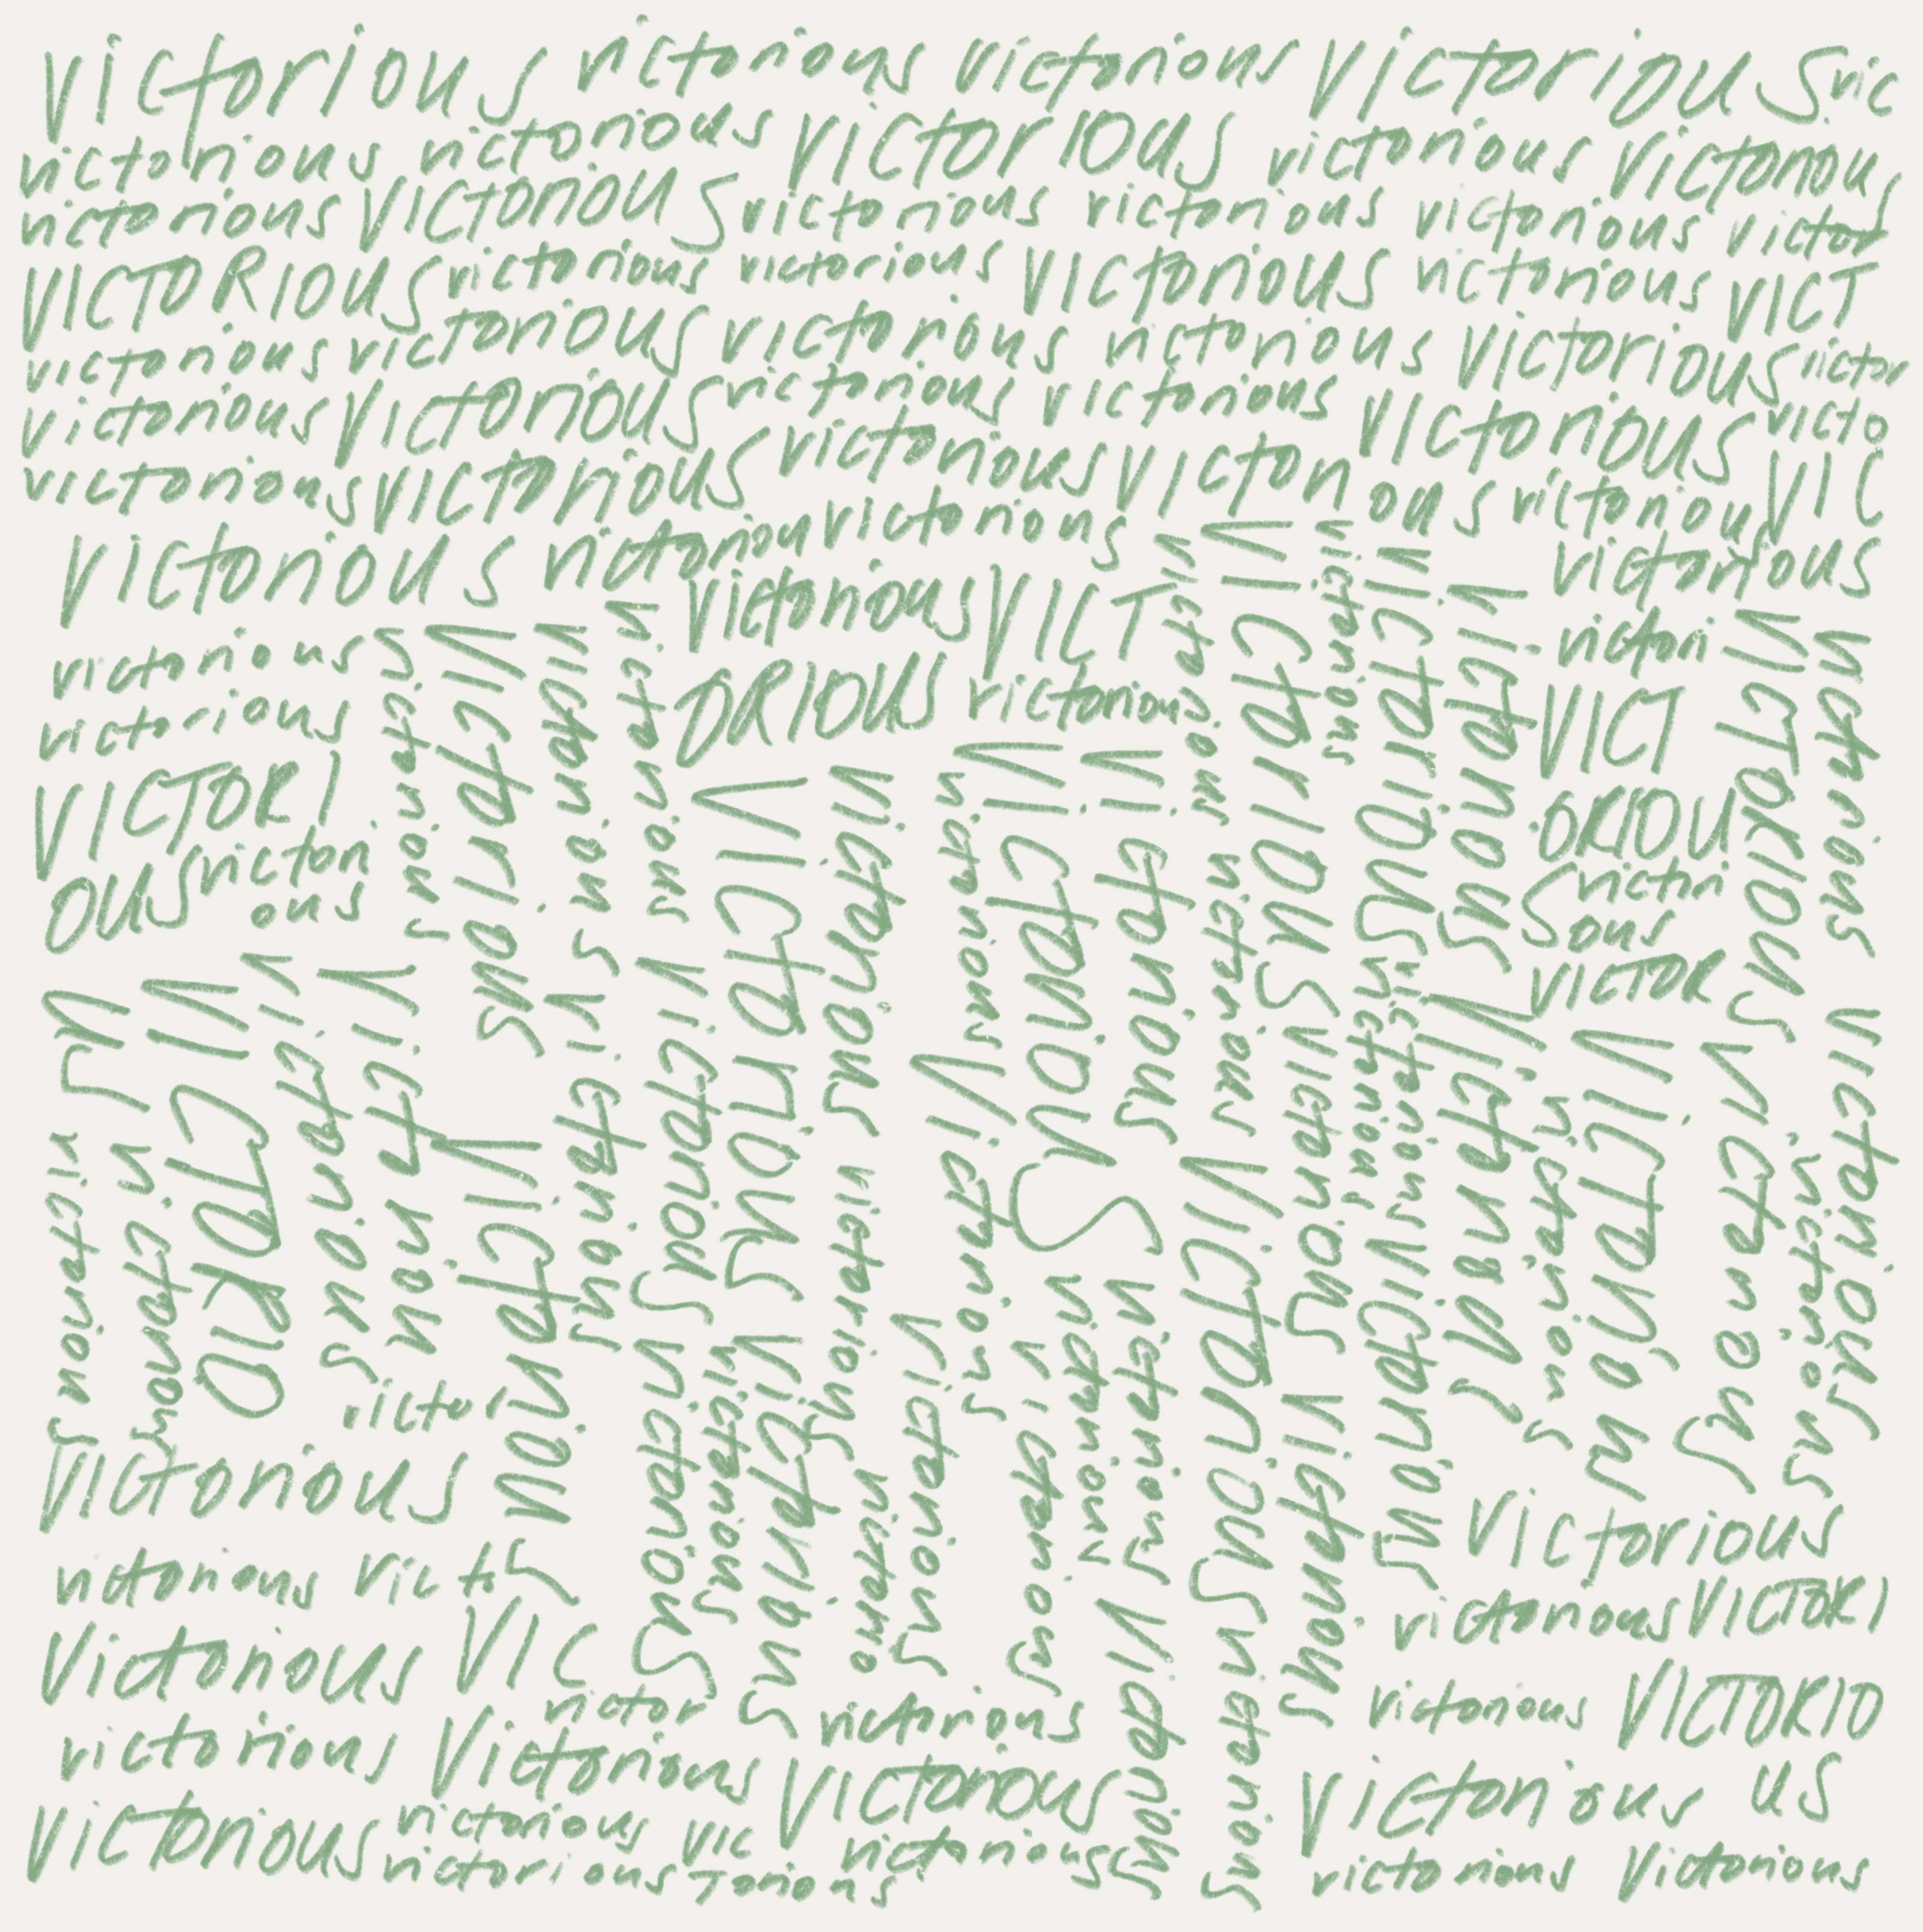 victorious victorious victorious Victorious vic
victorious victorious VICTORIOUS victorious Victoriou
victorious VICTORIOUS victorious victorious victorious victor
VICTORIOUS victorious victorious VICTORIOUS victorious VICT
victorious victorious victorious victorious Victorious victor
victorious Victorious victorious victorious Victorious victo
victorious VICTORIOUS victorious Victorious victoriou VIC
Victorious victoriou victorious victorious
Victorious VICT
ORIOUS victorious
victorious
victorious
VICTORI
OUS victori
ous
victori
VICT
ORIOU
S victori
ous
VICTOR
victorious
Victorious
victorious
victorious
victorious
Victorious
Victorious
victorious
Victorious
VICTORIOUS
victorious
Victorious
victorious
victorious
Victorious
Victorious
victorious
victorious
us
VICTORIO
victorious
victorious
victorious
victorious
Victorious
victorious
Victorious
victorious
Victorious
victorious
victorious
victorious
victorious
Victorious
victorious
victorious
victorious
victorious
victorious
Victorious
victorious
Victorious
victorious
Victorious
Victorious
victorious
Victorious
victorious
victorious
victorious
victor
Victorious
victorious vict
Victorious VIC
victor
victorious Victorious
victorious
Victorious
Victorious victorious VIC victorious
victorious Torious
Victorious
victorious VICTORI
victorious VICTORIO
Victorious US
victorious Victorious